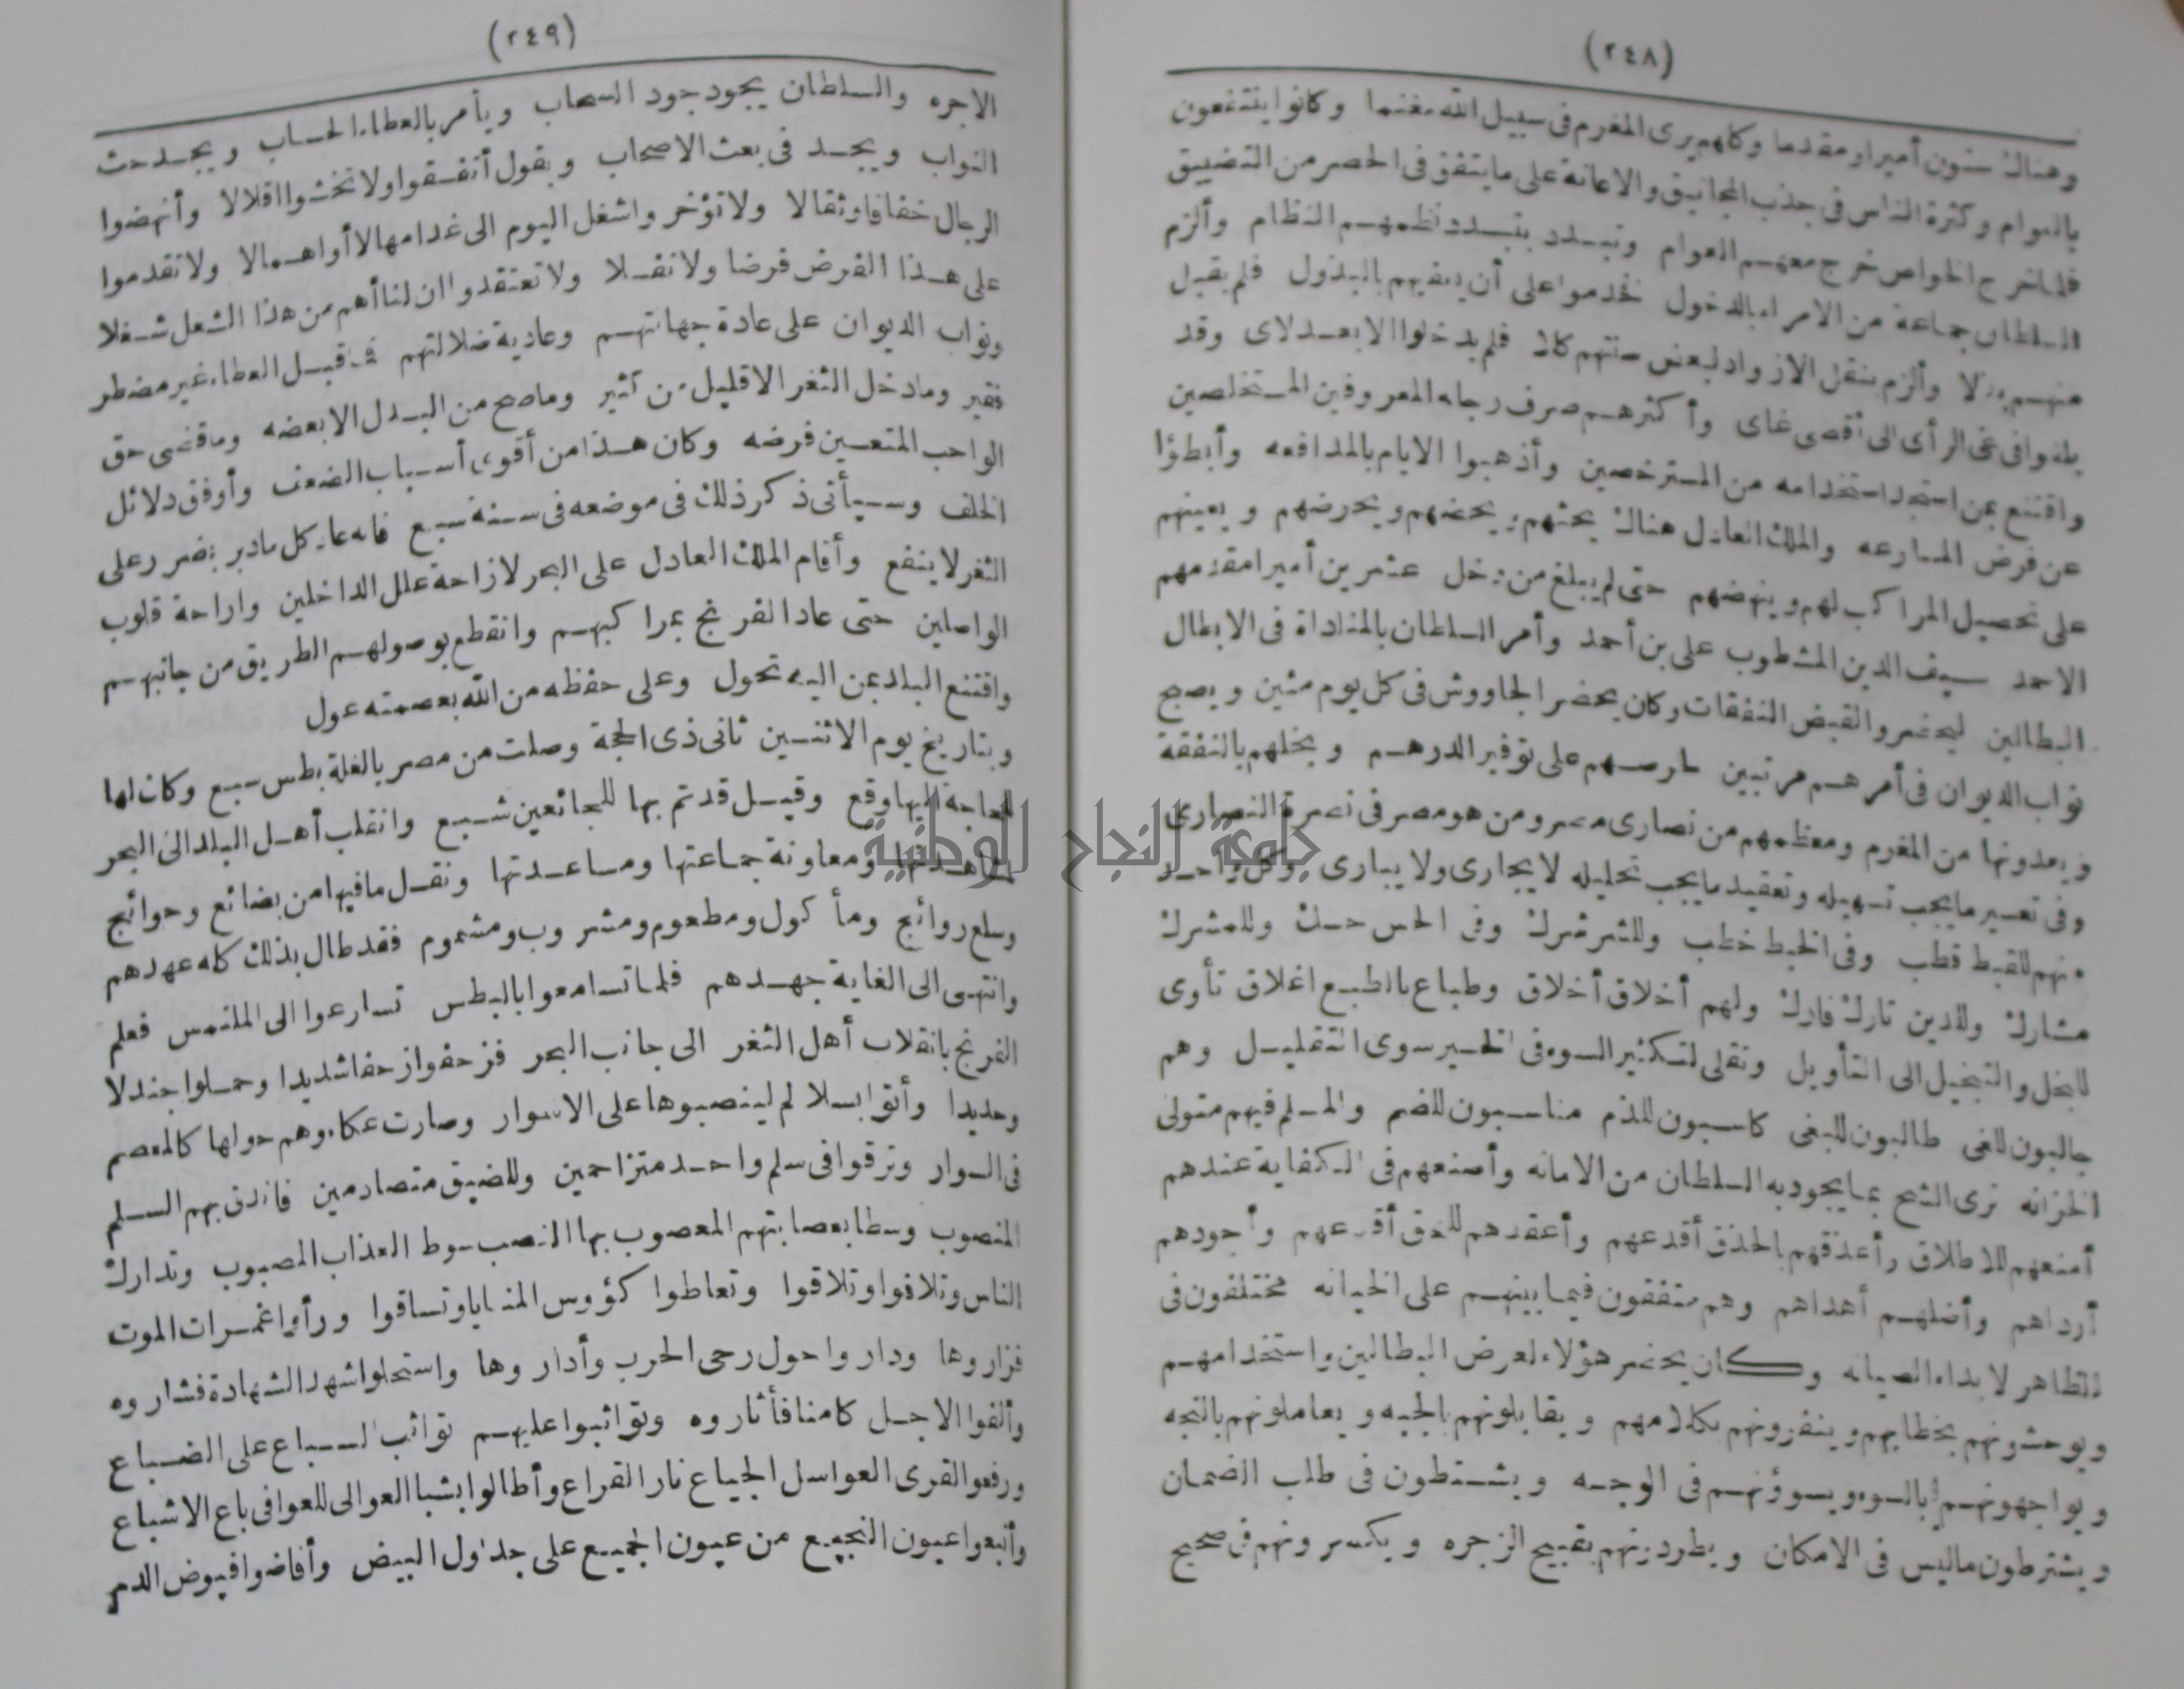 (٢٤٨)
وهناك ستون أميرا ومقدما وكلهم يرى المغرم فى سبيل الله مغنما وكانوا ينتفعون
بالعوام وكثرة الناس فى جذب المجانيق والاعانة على ما يتفق فى الحصر من التضييق
فلما خرج الخواص خرج معهم العوام وتبدد بتبدد نظمهم النظام وألزم
السلطان جماعة من الامراء بالدخول فقدموا على أن يعفيهم بالبذول فلم يقبل
منهم بذلا وألزم بنقل الازواد لبعض سنتهم كلا فلم يدخلوا الا بعد لاى وقد
بلغوا فى غى الرأى الى أقصى غاى وأكثرهم صرف رجاله المعروفين المستخلصين
واقتنع بمن استجد استخدامه من المسترخصين وأذهبوا الايام بالمدافعه وأبطؤا
عن فرض المسارعه والملك العادل هناك يحثهم ويحضهم ويحرضهم ويعينهم
على تحصيل المراكب لهم وينهضهم حتى لم يبلغ من دخل عشرين أميرا مقدمهم
الاحمد سيف الدين المشطوب على بن أحمد وأمر السلطان بالمناداة فى الابطال
البطالين ليحضروا لقبض النفقات وكان يحضر الجاووش فى كل يوم مئين ويصبح
نواب الديوان فى أمرهم مرتبين لحرصهم على توفير الدرهم وبخلهم بالنفقة
ويعدونها من المغرم ومعظمهم من نصارى مصر ومن هو مصر فى نصرة النصارى
وفى تعسير ما يجب تسهيله وتعقيد ما يجب تحليله لا يجارى ولا يبارى وكل واحد
منهم للقبط قطب وفى الخبط خطب وللشر شرك وفى الحس حسك وللمشرك
مشارك وللدين تارك فارك ولهم أخلاق أخلاق وطباع بالطبع اغلاق تأوى
للبخل والتبخيل الى التأويل وتقلى لتكثير السوء فى الخير سوى التقليل وهم
جالبون للغى طالبون للبغى كاسبون للذم مناسبون للضم والمسلم فيهم متولى
الخزانه نرى الشح بما يجود به السلطان من الامانه وأصنعهم فى الكفاية عندهم
أمنعهم للاطلاق وأعذقهم بالحذق أقدعهم وأعقدهم للحق أقرعهم وأجودهم
أرداهم وأضلهم أهداهم وهم متفقون فيما بينهم على الخيانه مختلفون فى
الظاهر لابداء الصيانه وكان يحضر هؤلاء لعرض البطالين واستخدامهم
ويوحشونهم بخطابهم وينفرونهم بكلامهم ويقابلونهم بالجبه ويعاملونهم بالنجه
ويواجهونهم بالسوء ويسوؤنهم فى الوجه ويشتطون فى طلب الضمان
ويشترطون ما ليس فى الامكان ويطردونهم بقبيح الزجره ويكسرونهم فى صحيح
(٢٤٩)
الاجره والسلطان يجود جود السحاب ويأمر بالعطاء الحساب ويجد حث
النواب ويجد فى بعث الاصحاب ويقول أنفقوا ولا تخشوا اقلالا وأنهضوا
الرجال خفافا وثقالا ولا تؤخروا شغل اليوم الى غد امهالا أو اهمالا ولا تقدموا
على هذا الفرض فرضا ولا نفلا ولا تعتقدوا ان لنا أهم من هذا الشغل شغلا
ونواب الديوان على عادة جهالتهم وعادية ضلالتهم فما قبل العطاء غير مضطر
فقير وما دخل الثغر الا قليل من كثير وما صح من البدل الا بعضه وما قضى حق
الواجب المتعين فرضه وكان هذا من أقوى أسباب الضعف وأوفق دلائل
الخلف وسيأتى ذكر ذلك فى موضعه فى سنة سبع فانه عاد كل مادبر بضرر على
الثغر لا ينفع وأقام الملك العادل على البحر لازاحة علل الداخلين واراحة قلوب
الواصلين حتى عاد الفرنج بمراكبهم وانقطع بوصولهم الطريق من جانبهم
واقتنع البلد بمن اليه تحول وعلى حفظه من الله بعصمته عول
وبتاريخ يوم الاثنين ثانى ذى الحجة وصلت من مصر بالغلة بطس سبع وكان لها
للحاجة اليها وقع وقيل قد تم بها للجائعين شبع وانقلب أهل البلد الى البحر
لمشاهدتها ومعاونة جماعتها ومساعدتها ونقل ما فيها من بضائع وحوائج
وسلع روائج ومأكول ومطعوم ومشروب ومشموم فقد طال بذلك كله عهدهم
وانتهى الى الغاية جهدهم فلما تسامعوا بالبطس تسارعوا الى الملتمس فعلم
الفرنج بانقلاب أهل الثغر الى جانب البحر فزحفوا زحفا شديدا وحملوا جندلا
وحديدا وأتوا بسلالم لينصبوها على الاسوار وصارت عكاء وهم حولها كالمعصم
فى السوار وترقوا فى سلم واحد متزاحمين وللضيق متصادمين فاندق بهم السلم
المنصوب وسطا بعصابتهم المعصوب بها النصب سوط العذاب المصبوب وتدارك
الناس وتلافوا وتلاقوا وتعاطوا كؤوس المنايا وتساقوا ورأوا غمرات الموت
فزاروها وداروا حول رحى الحرب وأداروها واستحلوا شهد الشهادة فشاروه
وألفوا الاجل كامنا فأثاروه وتواثبوا عليهم تواثب السباع على الضباع
ورفعوا لقرى العواسل الجياع نار القراع وأطالوا بشبا العوالى للعوافى باع الاشباع
وأنبعوا عيون النجيع من عيون الجميع على جداول البيض وأفاضوا فيوض الدم
جامعة النجاح الوطنية